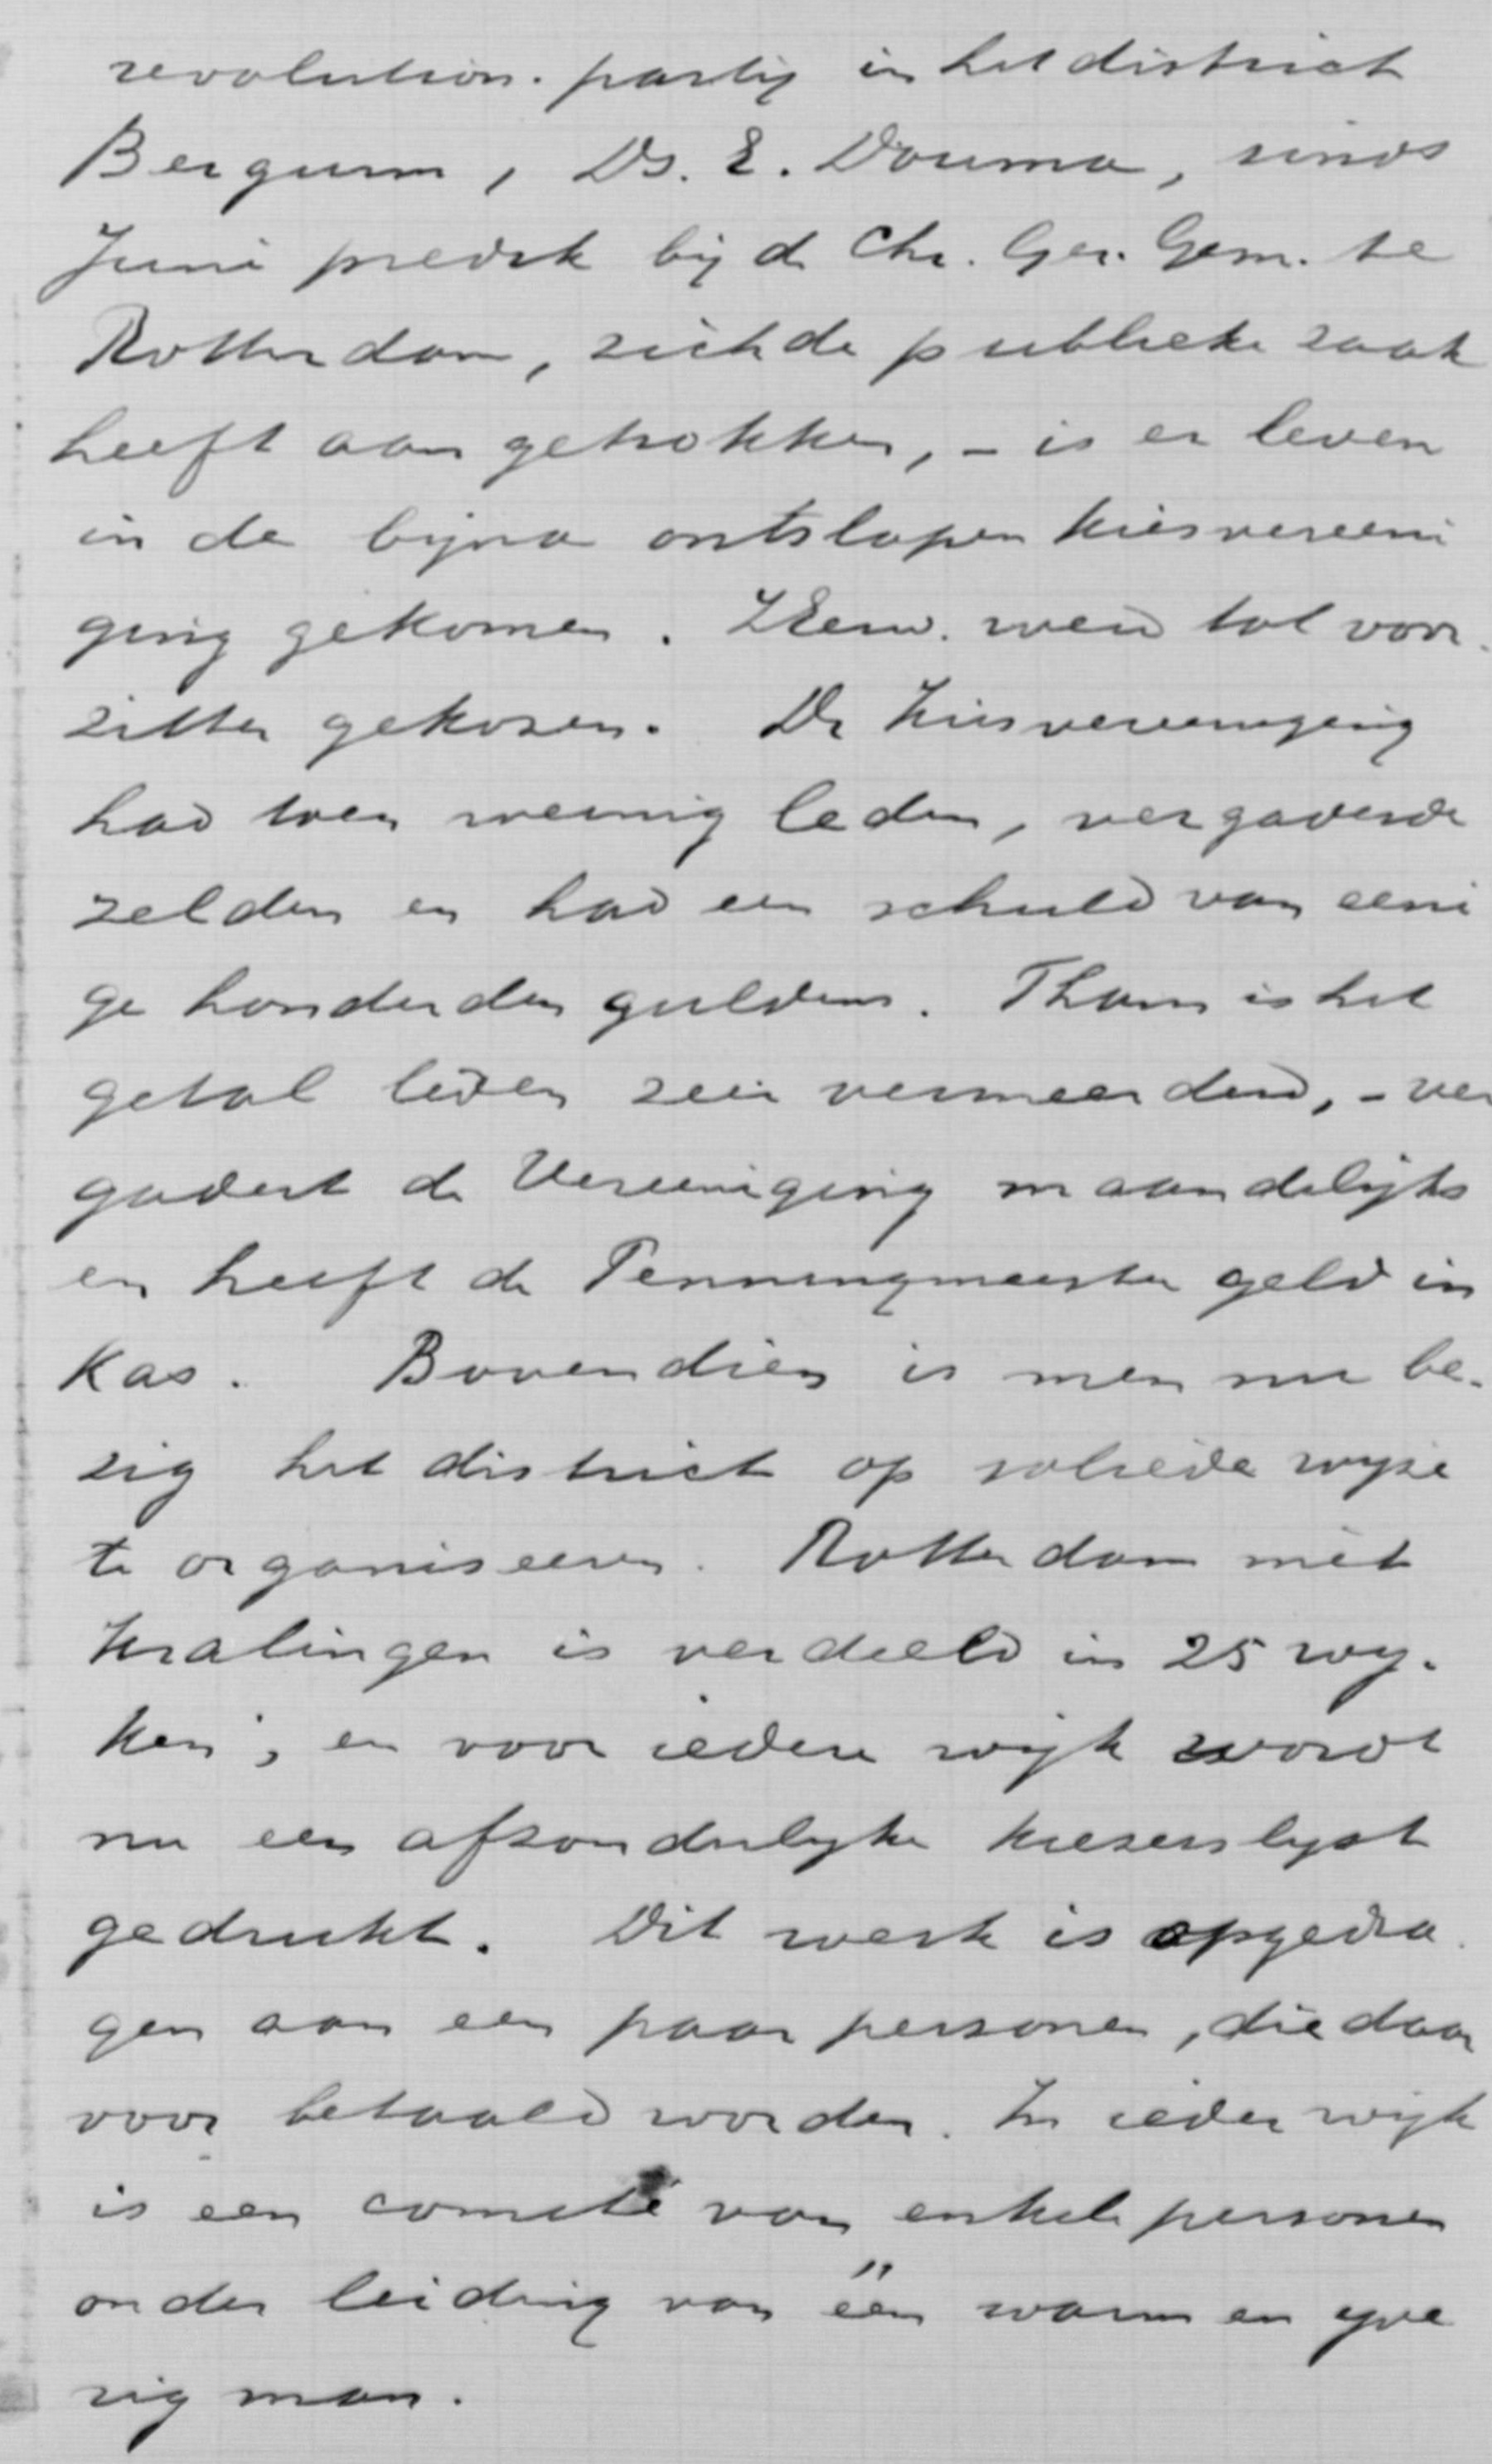 revolution. partij in het district
Bergum, Ds. E. Douma, sinds
Juni predik bij de Chr. Ger. Gem. te
Rotterdam, zich de publieke zaak
heeft aangetrokken, - is er leven
in de bijna ontslapen kiesvereeni
ging gekomen. ZEerw. werd tot voor-
zitter gekozen. De Kiesvereeniging
had toen weinig leden, vergaderde
zelden en had een schuld van eeni
ge honderden guldens. Thans is het
getal leden zeer vermeerderd, - ver
gadert de Vereeniging maandelijks
en heeft de Penningmeester geld in
Kas. Bovendien is men nu be-
zig het district op soliede wijze
te organiseeren. Rotterdam met
Kralingen is verdeeld in 25 wij-
ken; en voor iedere wijk wordt
nu een afzonderlijke kiezerslijst
gedrukt. Dit werk is opgedra
gen aan een paar personen, die daar
voor betaald worden. In ieder wijk
is een comité van enkele personen
onder leiding van één warm en ijve
rig man.